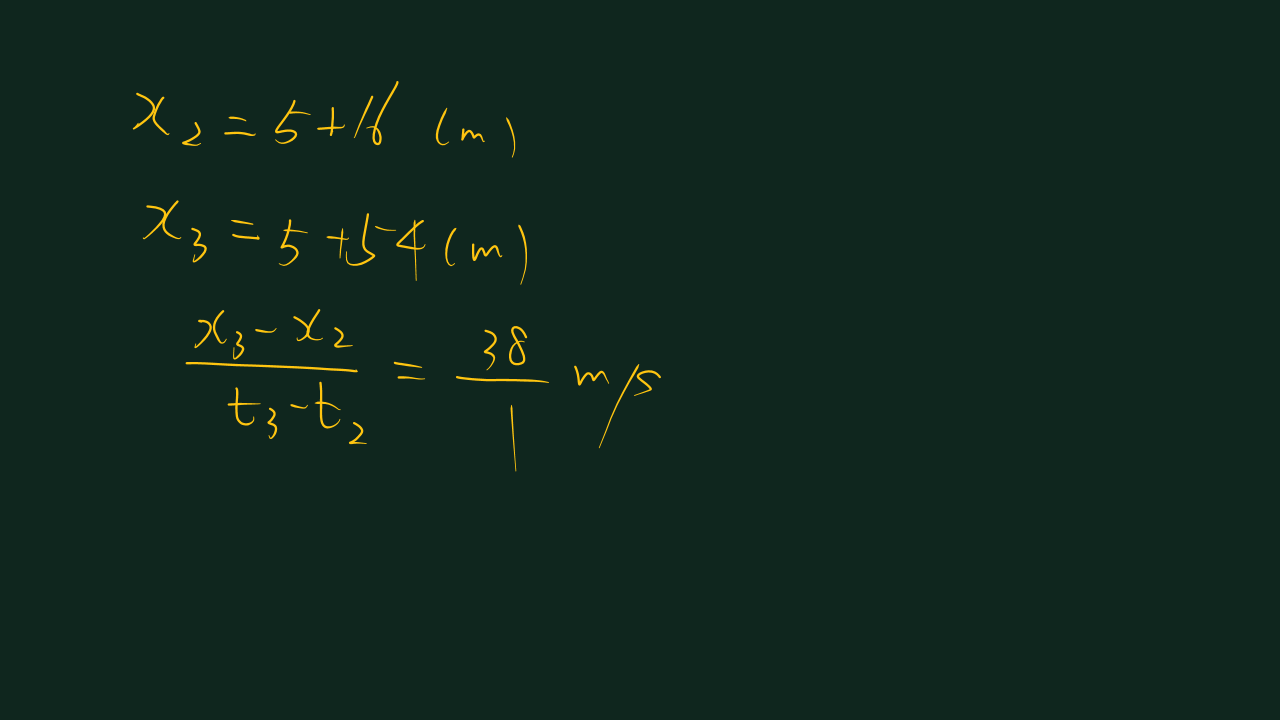 x₂ = 5 + 16 (m)
x₃ = 5 + 54 (m)
(x₃ - x₂)/(t₃ - t₂) = 38/1 m/s